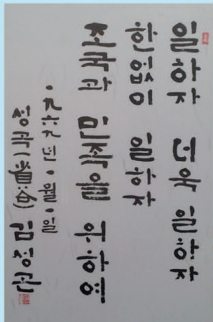 일하자 더욱 일하자
한없이 일하자
조국과 민족을 위하여
一九六九년 一월 一일
성곡(省谷) 김성곤